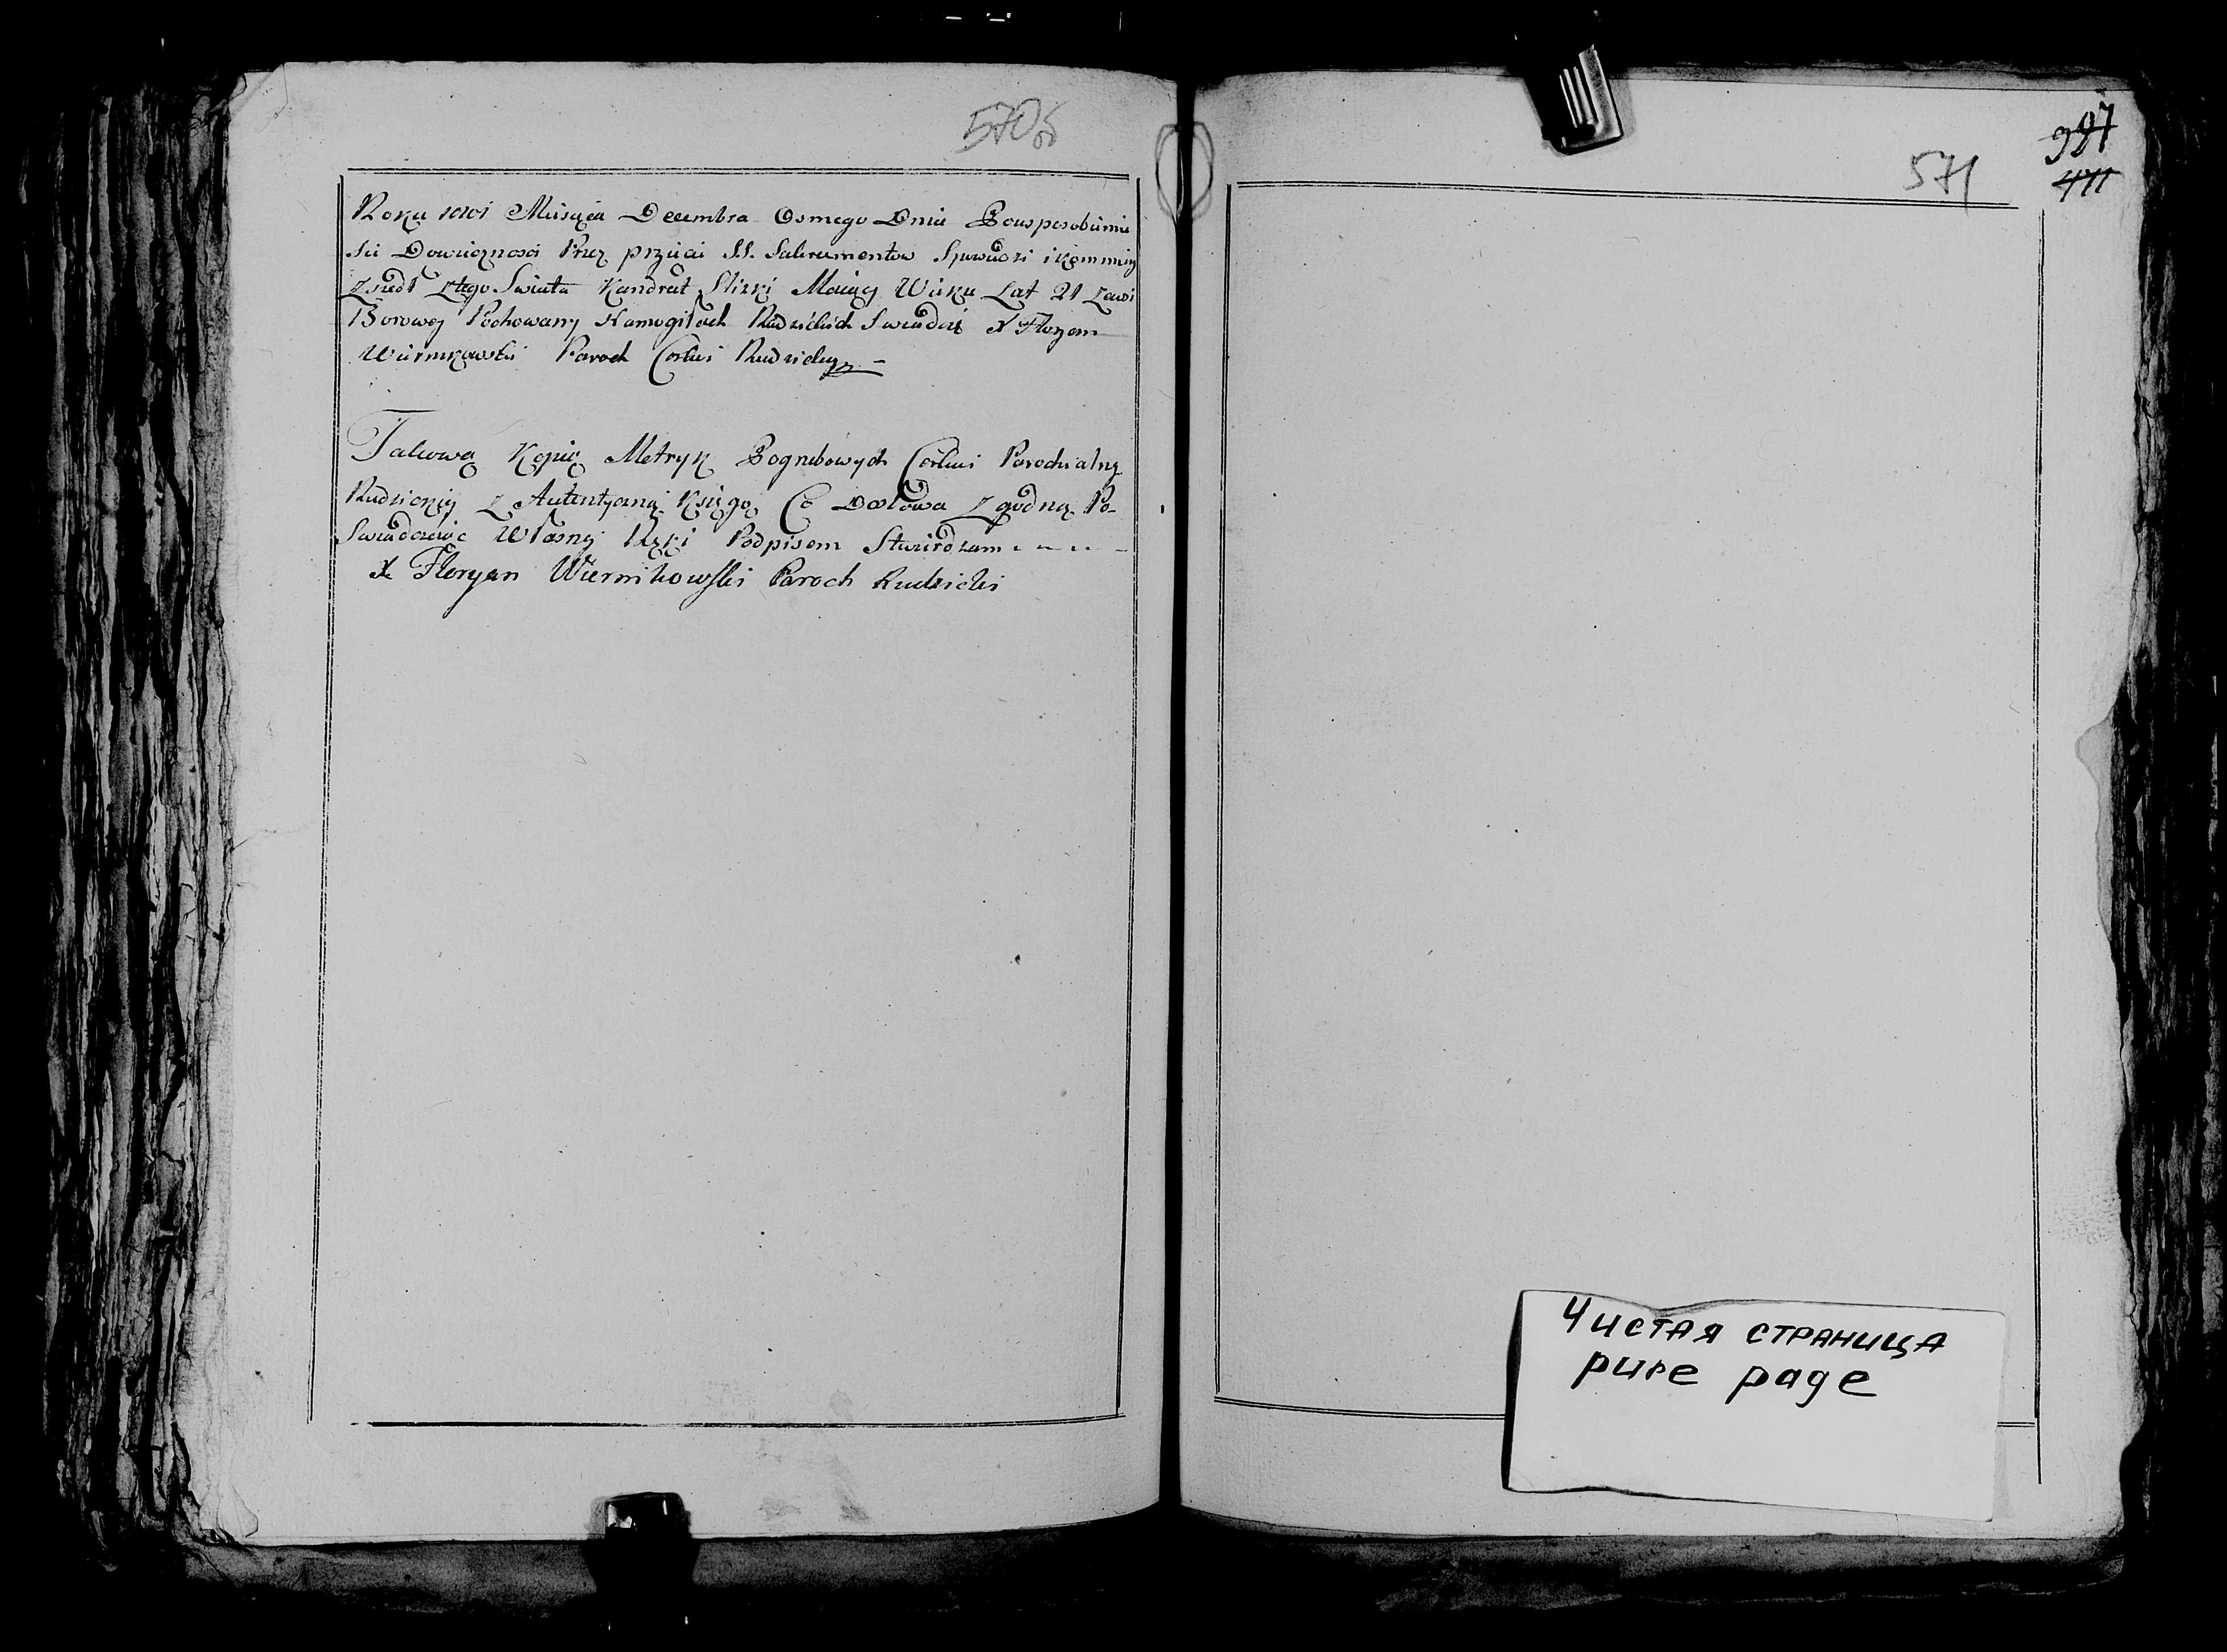 570б
Roku 1801 Miesiąca Decembra Osmego Dnia Po usposobieniu
sie Dowiecznosci Przez przyięcie SS. Sakramentow Spowiedzi i Kommuij
Zszedł Ztego Swiata Kandrat Slizki Maiący Wieku Lat 21 Zewsi
Borowey Pochowany Namogiłach Rudzickich Swiadczę X Floryan
Wiernikowski Paroch Cerkwi Rudzickiey
Takową Kopię Metryk Pogrebowych Cerkwi Parochialney
Rudzickiey Z Autentyczną Księgą Co Dosłowa Zgodną Po-
Swiadczaiąc Własney Ręki Podpisem Stwierdzam
X Floryan Wiernikowski Paroch Rudzicki
571
Чистая страница
pure page